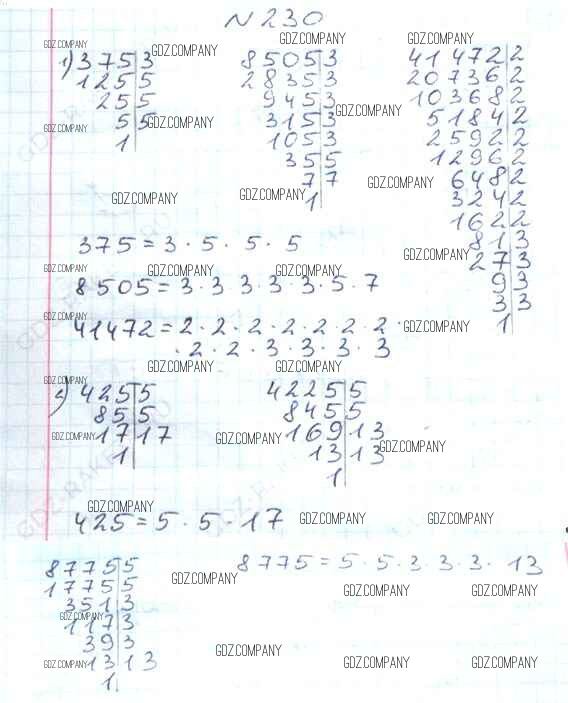 N 230
GDZ.COMPANY
GDZ.COMPANY
GDZ.COMPANY
GDZ.COMPANY
1) 375|3
125|5
25|5
5|5
1
GDZ.COMPANY
GDZ.COMPANY
GDZ.COMPANY
8505|3
2835|3
945|3
315|3
105|3
35|5
7|7
1
GDZ.COMPANY
GDZ.COMPANY
GDZ.COMPANY
GDZ.COMPANY
41472|2
20736|2
10368|2
5184|2
2592|2
1296|2
648|2
324|2
162|2
81|3
27|3
9|3
3|3
1
GDZ.COMPANY
GDZ.COMPANY
375 = 3 · 5 · 5 · 5
GDZ.COMPANY
GDZ.COMPANY
GDZ.COMPANY
8505 = 3 · 3 · 3 · 3 · 3 · 5 · 7
GDZ.COMPANY
41472 = 2 · 2 · 2 · 2 · 2 · 2 · 2 ·
· 2 · 2 · 3 · 3 · 3 · 3
GDZ.COMPANY
GDZ.COMPANY
GDZ.COMPANY
425|5
85|5
17|17
1
GDZ.COMPANY
4225|5
845|5
169|13
13|13
1
GDZ.COMPANY
GDZ.COMPANY
GDZ.COMPANY
425 = 5 · 5 · 17
GDZ.COMPANY
GDZ.COMPANY
8775|5
1755|5
351|3
117|3
39|3
13|13
1
GDZ.COMPANY
GDZ.COMPANY
8775 = 5 · 5 · 3 · 3 · 3 · 13
GDZ.COMPANY
GDZ.COMPANY
GDZ.COMPANY
GDZ.COMPANY
GDZ.COMPANY
GDZ.COMPANY